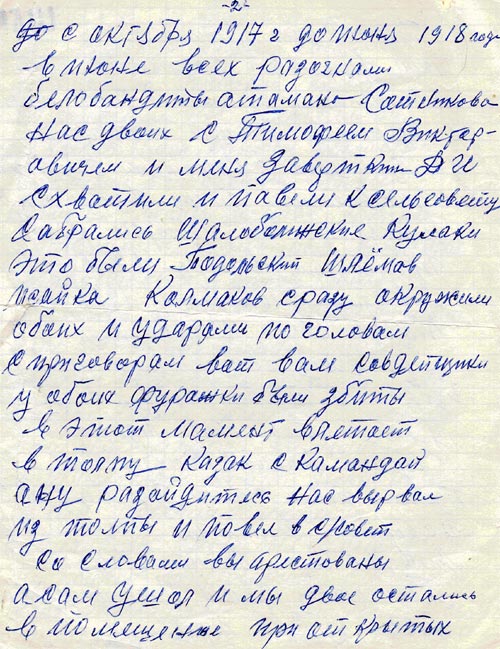 -2-
с октября 1917 г до июня 1918 года
в июне всех разогнали
белобандиты атамана Сатенкова
нас двоих с Тимофеем Виктар-
овичем и меня Заверткин В И
схватили и павели к сельсовету
Сабрались Шалоболинские Кулаки
это были Подольский Шлёмав
исайка Колмаков сразу окружили
обоих и ударами по головам
с приговорам вот вам совдепщики
у обоих фуражки были збиты
в этот мамент влетает
в толпу казак с Камандай
ану разайдитесь нас вырвал
из толпы и повел в совет
со словами вы арестованы
а сам ушол и мы двое остались
в помещение при открытых